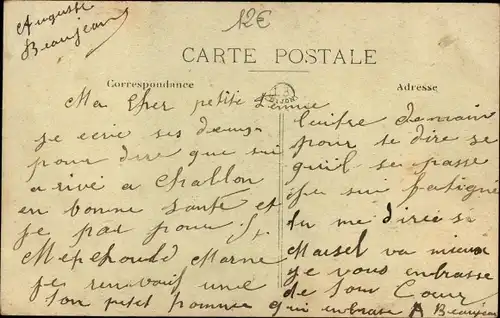 Auguste
Beaujean
12€
CARTE POSTALE
Correspondance
Adresse
Ma Cher petite femme
je ecrie ses deux
pour dire que sui
arivé a Challon
en bonne santé et
je par pour St
Mepehould Marne
je renvouis une
lettre demain
pour te dire se
qu'il se passe
je sui fatigué
tu me direé si
Marsel va mieux
je vous enbrasse
de tout Coeur
ton petit homme qui enbrase A Beaujean